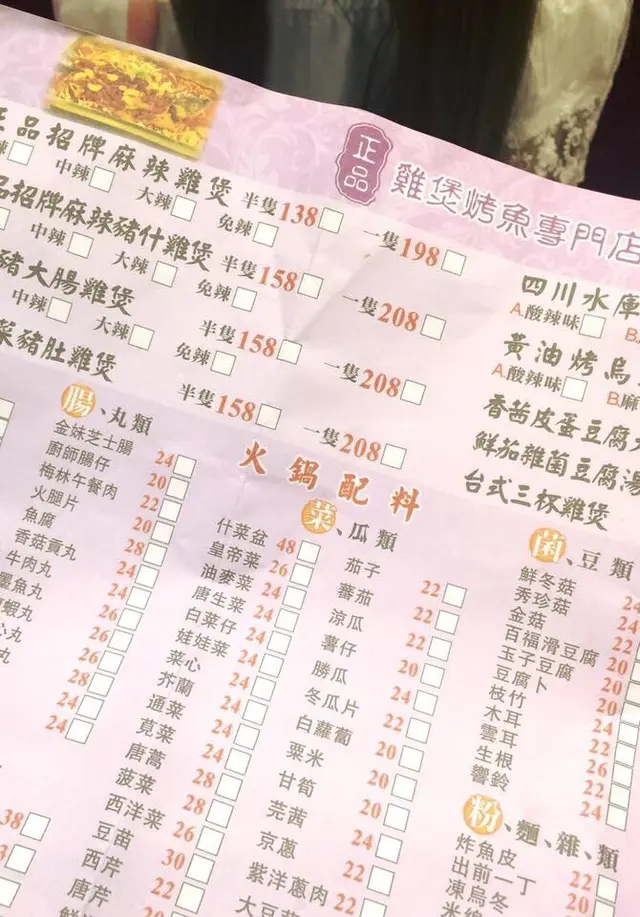 正品
雞煲烤魚專門店
正品招牌麻辣雞煲 半隻138 一隻198
辣 中辣 大辣 免辣
品招牌麻辣豬什雞煲 半隻158 一隻208
中辣 大辣 免辣
豬大腸雞煲 半隻158 一隻208
中辣 大辣 免辣
菜豬肚雞煲 半隻158 一隻208
四川水庫
A.酸辣味 B.
黃油烤烏
A.酸辣味 B.麻
香茜皮蛋豆腐
鮮茄雜菌豆腐湯
台式三杯雞煲
火鍋配料
腸、丸類
金妹芝士腸 24
廚師腸仔 20
梅林午餐肉 22
火腿片 20
魚腐 28
香菇貢丸 24
牛肉丸 24
墨魚丸 26
蝦丸 26
心丸 28
丸 24
24
38
菜、瓜類
什菜盆 48
皇帝菜 26
油麥菜 24
唐生菜 24
白菜仔 24
娃娃菜 24
菜心 24
芥蘭 24
通菜 24
莧菜 24
唐蒿 28
菠菜 28
西洋菜 26
豆苗 30
西芹 22
唐芹 22
茄子 22
蕃茄 22
涼瓜 22
薯仔 20
勝瓜 24
冬瓜片 22
白蘿蔔 20
粟米 20
甘筍 20
芫茜 24
京蔥 22
紫洋蔥肉 22
大豆芽
菌、豆類
鮮冬菇
秀珍菇 24
金菇 24
百福滑豆腐 22
玉子豆腐 20
豆腐卜 20
枝竹 24
木耳 22
雲耳 22
生根 22
響鈴 24
粉、麵、雜、類
炸魚皮 22
出前一丁 20
凍烏冬